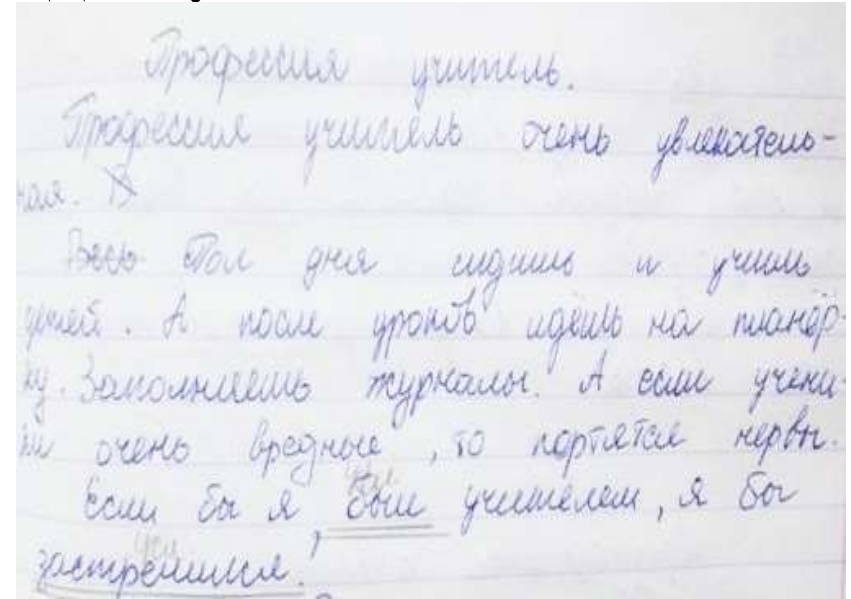 Профессия учитель.
Профессия учитель очень увлекатель-
ная. В
Весь пол дня сидишь и учишь
детей. А после уроков идёшь на планёр-
ку. Заполняешь журналы. А если учени-
ки очень вредные, то портятся нервы.
Если бы я, был учителем, я бы
застрелился.